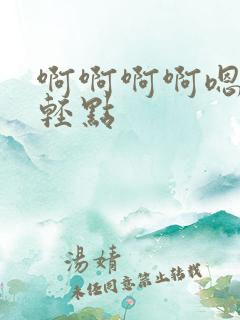 啊啊啊啊嗯
轻點
湯婧
未任同意禁止转载